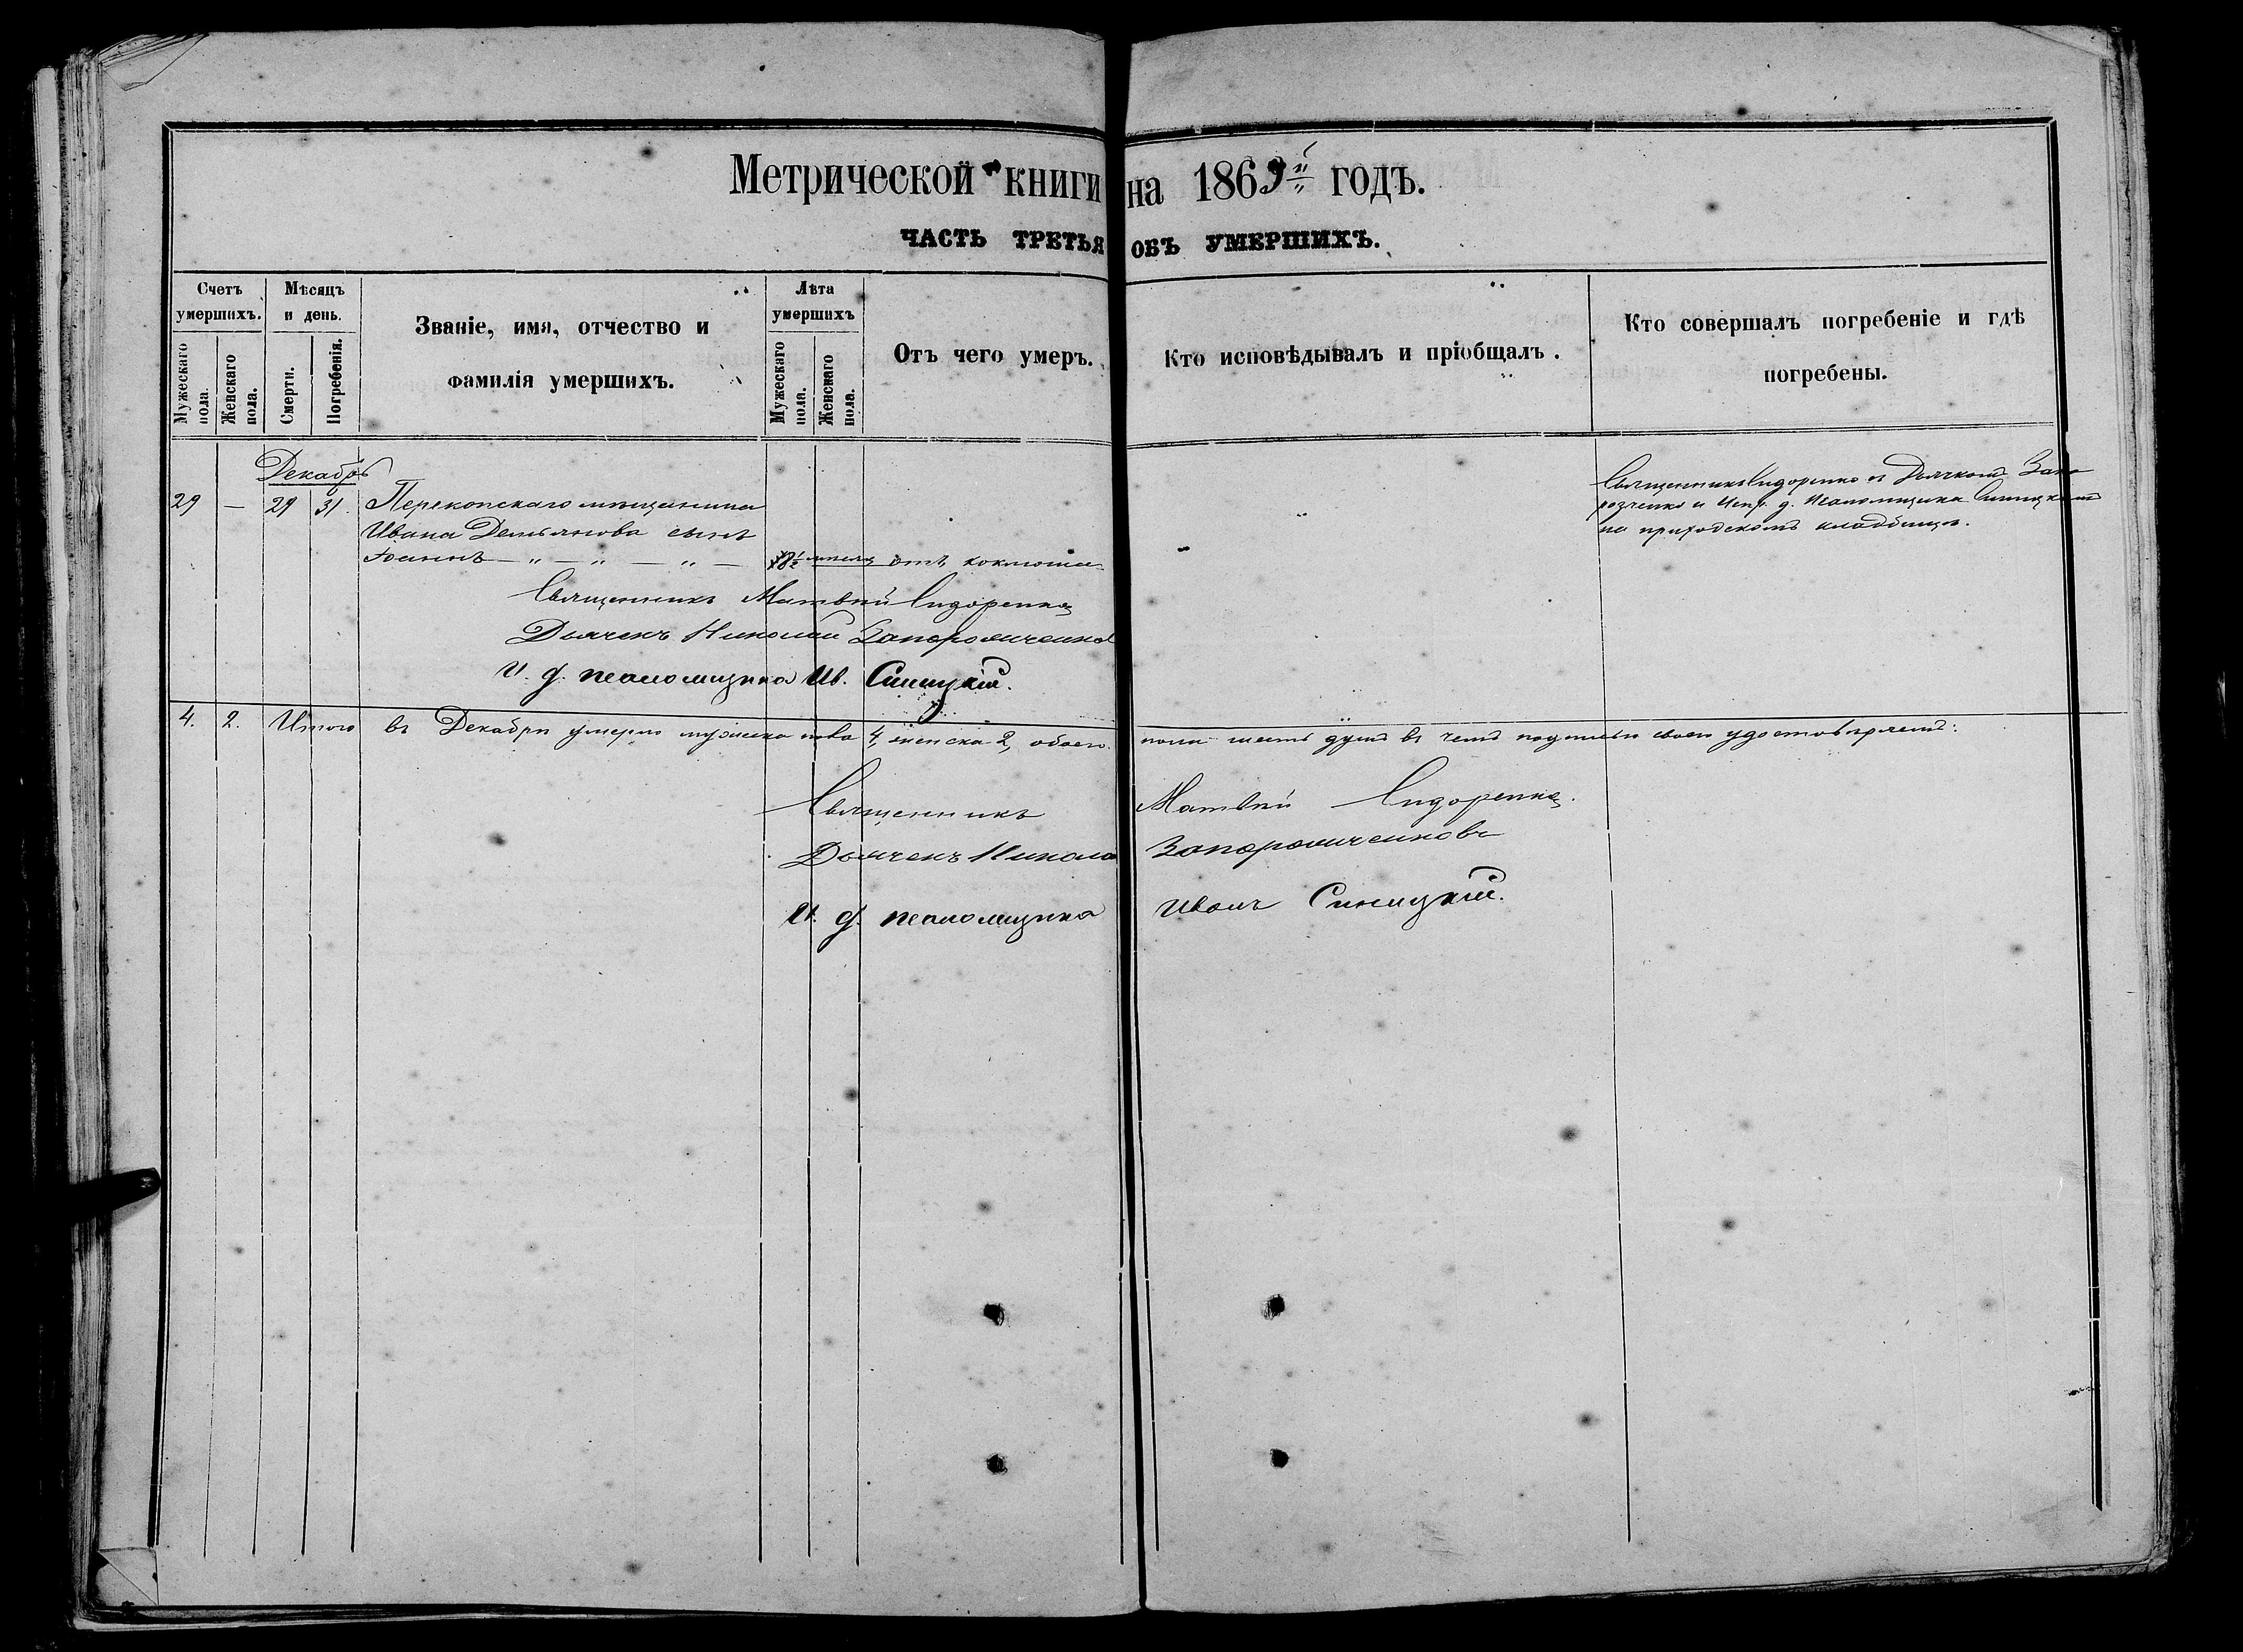 Метрической книги на 1869й годъ.
ЧАСТЬ ТРЕТЬЯ ОБЪ УМЕРШИХЪ.
Счетъ умершихъ.
Мужескаго пола.
Женскаго пола.
Мѣсяцъ и день.
Смерти.
Погребенія.
Званіе, имя, отчество и
фамилія умершихъ.
Лѣта умершихъ
Мужескаго пола.
Женскаго пола.
Отъ чего умеръ.
Кто исповѣдывалъ и пріобщалъ.
Кто совершалъ погребеніе и гдѣ
погребены.
Декабрь
29 — 29 31. Перекопскаго мѣщанина
Ивана Демьянова сынъ
Іоаннъ — „ — „ — „ — ½ отъ коклюша
Священникъ Сидоренко съ Дьячкомъ Запо
розченко и Испр. д. Псаломщика Синицкимъ
на приходскомъ кладбищѣ.
Священникъ Матвѣй Сидоренко
Дьячекъ Николай Запорожченко
И. д. псаломщика Ив. Синицкій.
4. 2. Итого въ Декабрѣ умерло мужеска пола 4, женска 2, обоего пола шесть душъ въ чемъ подписью своею удостовѣряемъ:
Священникъ Матвѣй Сидоренко.
Дьячекъ Никола Запорожченковъ
И. д. псаломщика Иванъ Синицкій.